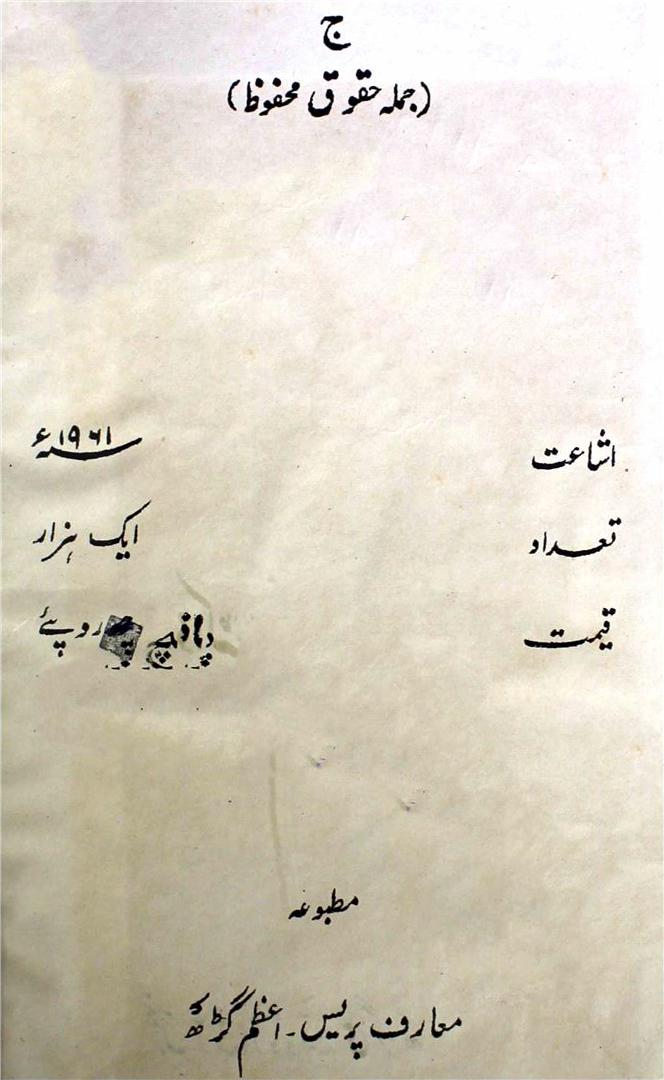 ج
(جملہ حقوق محفوظ)
اشاعت ۱۹۶۱ء
تعداد ایک ہزار
قیمت پانچ روپئے
مطبوعہ
معارف پریس۔ اعظم گڑھ